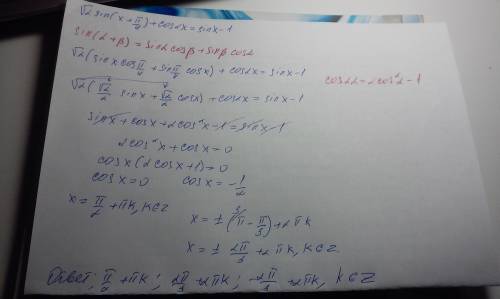 √2 sin(x+π/4)+cos2x=sinx-1
sin(α+β)=sinα cosβ+sinβ cosα
√2(sinx cos π/4 + sin π/4 cosx)+cos2x=sinx-1
cos2α=2cos²α-1
√2(√2/2 sinx+√2/2 cosx)+cos2x=sinx-1
sinx+cosx+2cos²x-1=sinx-1
2cos²x+cosx=0
cosx(2cosx+1)=0
cosx=0 cosx=-1/2
x=π/2+πk, k∈z
x=±(π-π/3)+2πk
x=±2π/3+2πk, k∈z.
Ответ: π/2+πk; 2π/3+2πk; -2π/3+2πk, k∈z